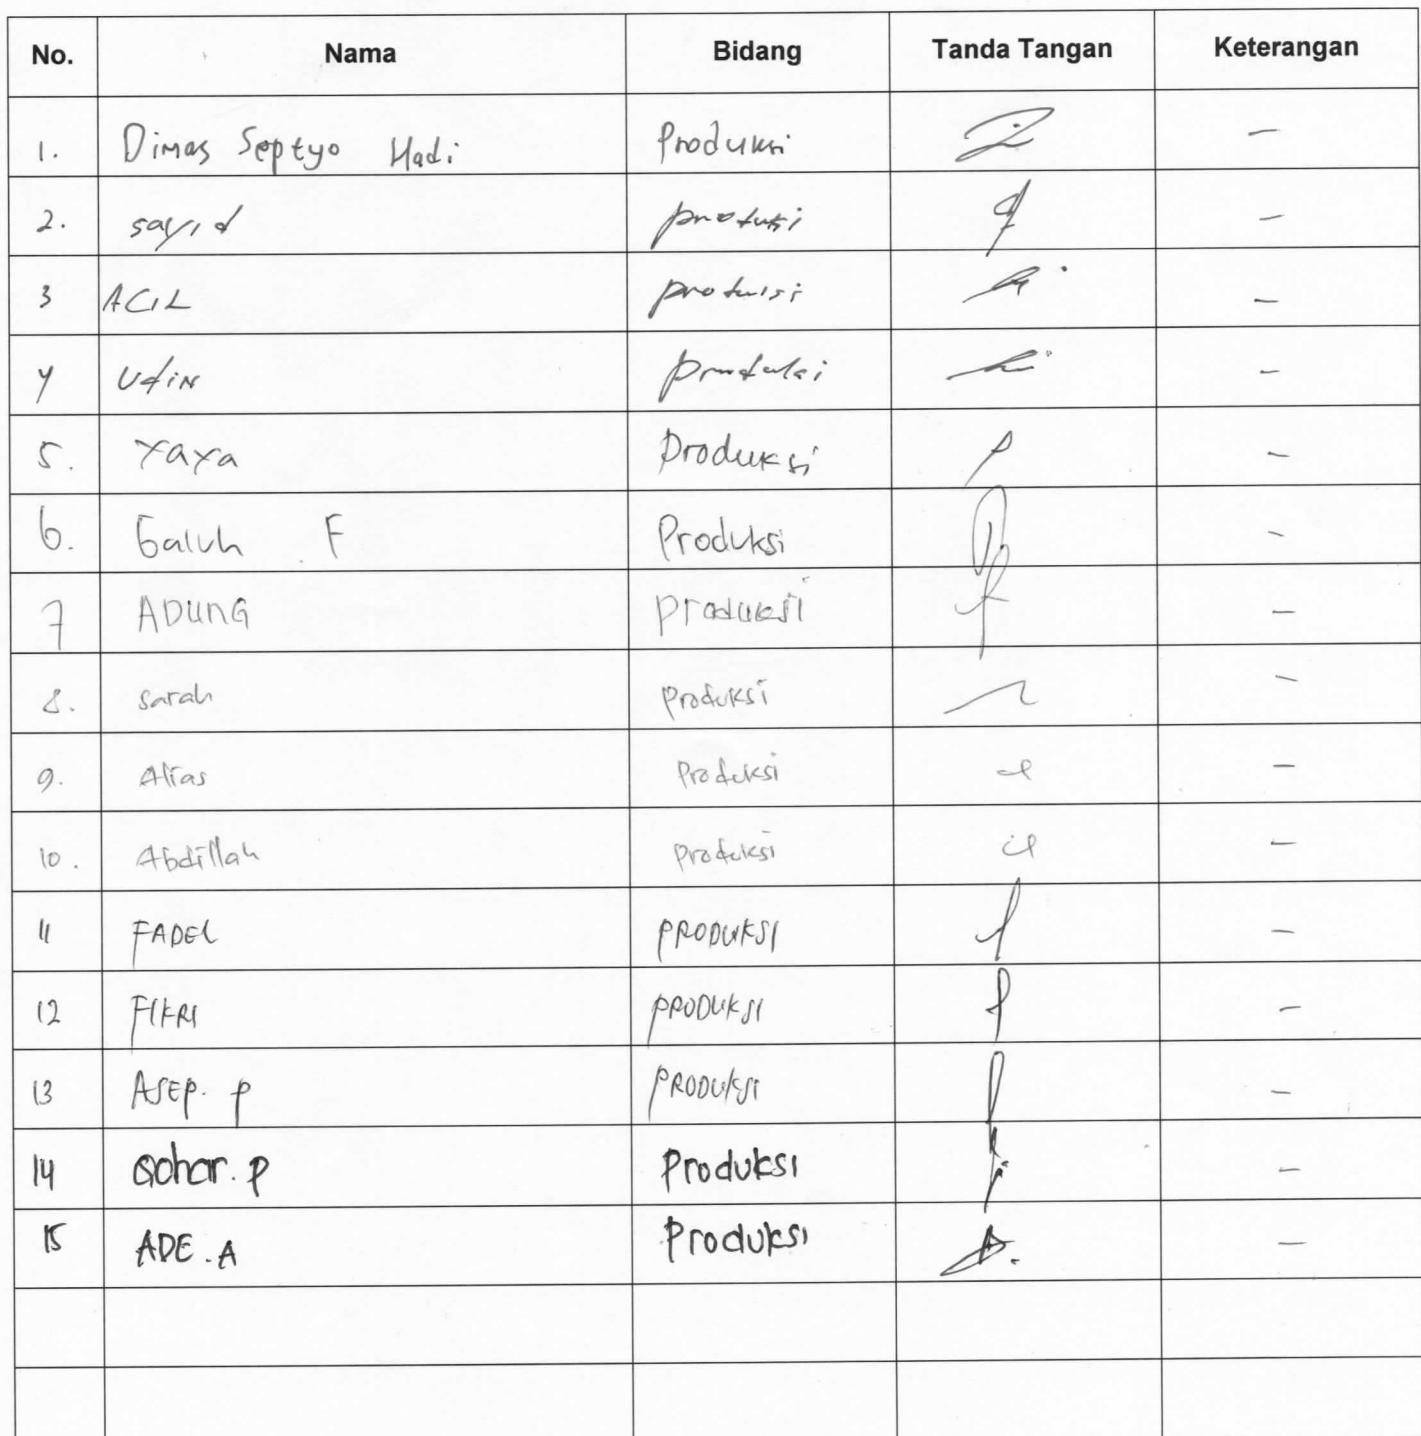 No. Nama Bidang Tanda Tangan Keterangan
1. Dimas Septyo Hadi Produksi –
2. sayid produksi –
3 ACIL produksi –
4 Udin produksi –
5. Yaya Produksi –
6. Galuh F Produksi –
7 ADUNG produksi –
8. Sarah Produksi –
9. Alias Produksi –
10. Abdillah Produksi –
11 FADEL PRODUKSI –
12 FIKRI PRODUKSI –
13 ASEP. P PRODUKSI –
14 Qohar. P Produksi –
15 ADE. A Produksi –